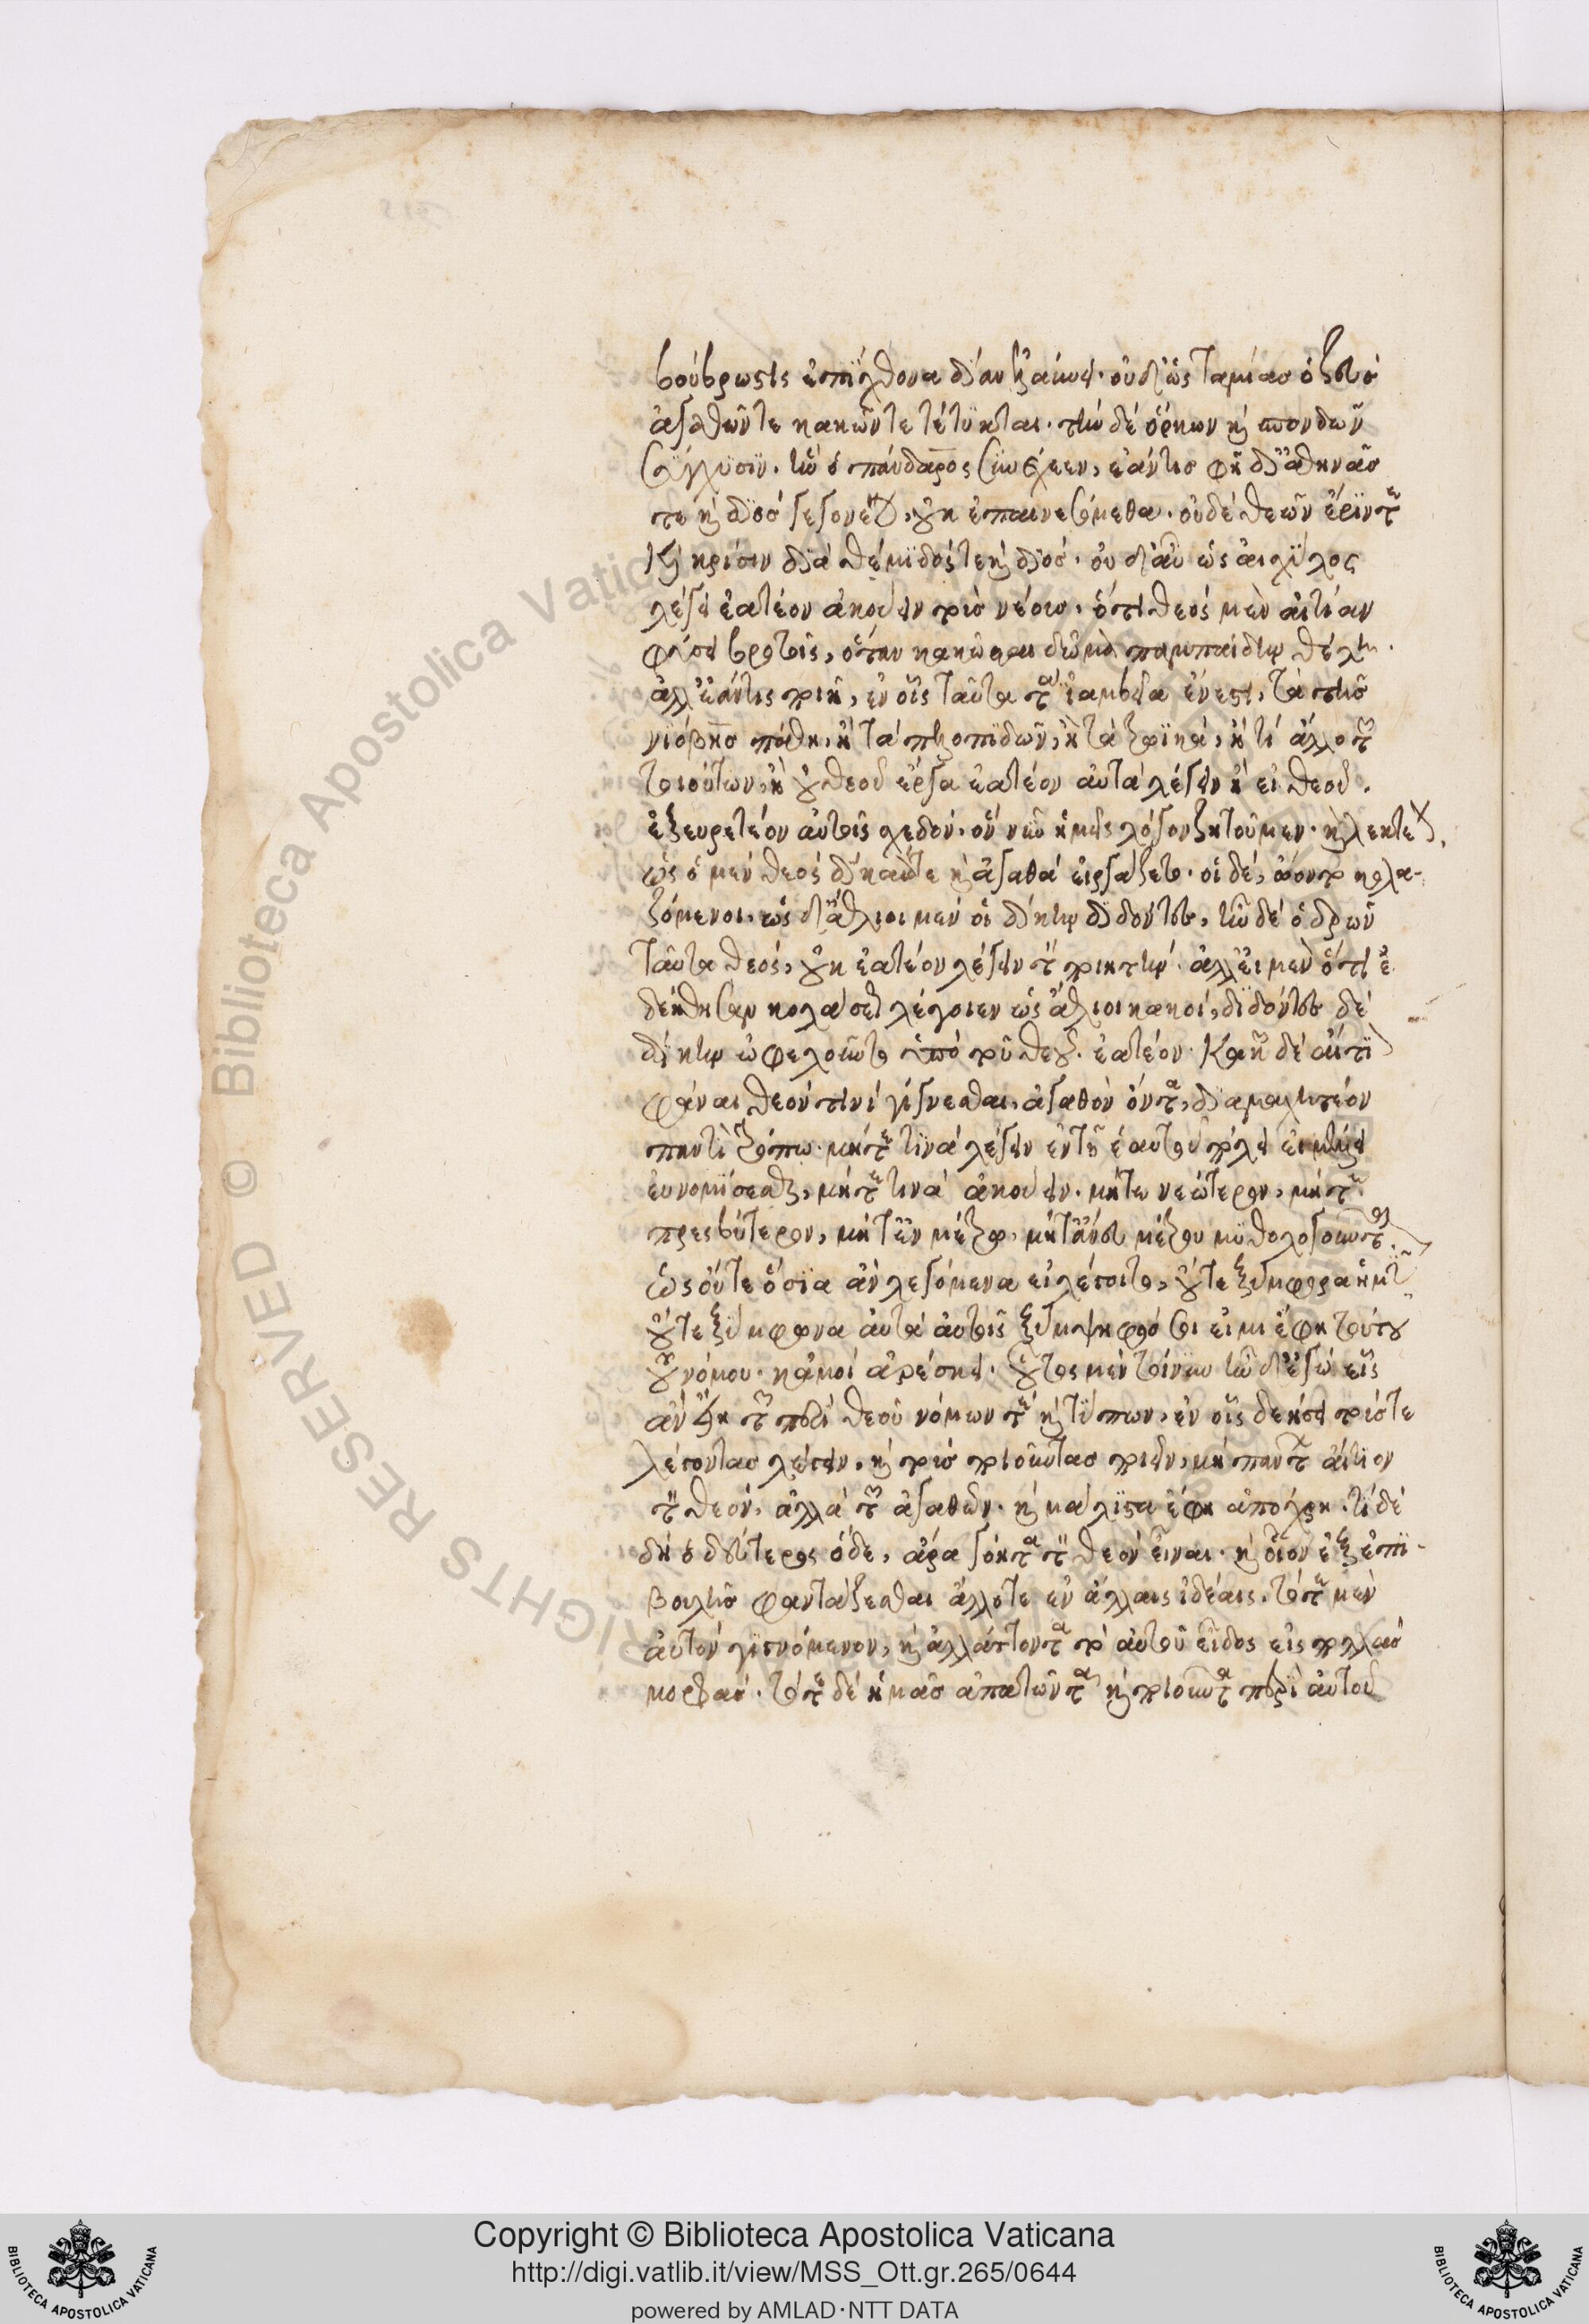 βούβρωστις ἐπὶ χθόνα δῖαν ἐλαύνει. οὐδ' ὡς ταμίας ὁ ζεὺς
ἀγαθῶν τε κακῶν τε τέτυκται. τὴν δὲ ὅρκων καὶ σπονδῶν
σύγχυσιν. ἣν ὁ πάνδαρος συνέχεεν, ἐάν τις φῇ δι' ἀθηνᾶς
τε καὶ διὸς γεγονέναι, οὐκ ἐπαινεσόμεθα. οὐδὲ θεῶν ἔριν τε
καὶ κρίσιν διὰ θέμιδός τε καὶ διός. οὐδ' αὖ ὡς αἰσχύλος
λέγει ἐατέον ἀκούειν τοὺς νέους. ὅτι θεὸς μὲν αἰτίαν
φύσει βροτοῖς, ὅταν κακῶσαι δῶμα παμπήδην θέλῃ.
ἀλλ' ἐάν τις ποιῇ, ἐν οἷς ταῦτα τὰ ἰαμβεῖα ἔνεστι, τὰ τῆς
νιόβης πάθη, ἢ τὰ πελοπιδῶν, ἢ τὰ τρωϊκά, ἤ τι ἄλλο τῶν
τοιούτων, ἢ οὐ θεοῦ ἔργα ἐατέον αὐτὰ λέγειν ἢ εἰ θεοῦ.
ἐξευρετέον αὐτοῖς σχεδόν. ὃν νῦν ἡμεῖς λόγον ζητοῦμεν. καὶ λεκτέον,
ὡς ὁ μὲν θεὸς δίκαιά τε καὶ ἀγαθὰ εἰργάζετο. οἱ δὲ, ὠνίναντο κολα-
ζόμενοι. ὡς δ' ἄθλιοι μὲν οἱ δίκην διδόντες, ἦν δὲ ὁ δρῶν
ταῦτα θεός, οὐκ ἐατέον λέγειν τὸν ποιητήν. ἀλλ' εἰ μὲν ὅτι ἐ
δεήθησαν κολάσεως λέγοιεν ὡς ἄθλιοι κακοί, διδόντες δὲ
δίκην ὠφελοῦντο ὑπὸ τοῦ θεοῦ. ἐατέον. κακῶν δὲ αἴτιον
φάναι θεόν τινι γίγνεσθαι, ἀγαθὸν ὄντα, διαμαχητέον
παντὶ τρόπῳ. μήτε τινὰ λέγειν ἐν τῇ ἑαυτοῦ πόλει εἰ μέλλει
εὐνομήσεσθαι, μήτε τινὰ ἀκούειν. μήτε νεώτερον, μήτε
πρεσβύτερον, μήτ' ἐν μέτρῳ. μήτ' ἄνευ μέτρου μυθολογοῦντα.
ὡς οὔτε ὅσια ἂν λεγόμενα εἰ λέγοιτο, οὔτε ξύμφορα ἡμῖν
οὔτε ξύμφωνα αὐτὰ αὑτοῖς ξύμψηφός σοι εἰμι ἔφη τούτου
τοῦ νόμου. καί μοι ἀρέσκει. οὗτος μὲν τοίνυν ἦν δ' ἐγὼ εἷς
ἂν εἴη τῶν περὶ θεοὺ νόμων τε καὶ τύπων, ἐν οἷς δεήσει τούς τε
λέγοντας λέγειν, καὶ τοὺς ποιοῦντας ποιεῖν, μὴ πάντων αἴτιον
τὸν θεόν, ἀλλὰ τῶν ἀγαθῶν. καὶ μάλιστα ἔφη ἀπόχρη. τί δὲ
δὴ ὁ δεύτερος ὅδε, ἆρα γόητα τὸν θεὸν εἶναι. καὶ οἷον ἐξ ἐπι-
βουλῆς φαντάζεσθαι ἄλλοτε ἐν ἄλλαις ἰδέαις. τότε μὲν
αὐτὸν γιγνόμενον, καὶ ἀλλάττοντα τὸ αὑτοῦ εἶδος εἰς πολλὰς
μορφάς. τότε δὲ ἡμᾶς ἀπατῶντα καὶ ποιοῦντα περὶ αὑτοῦ
Copyright © Biblioteca Apostolica Vaticana
http://digi.vatlib.it/view/MSS_Ott.gr.265/0644
powered by AMLAD·NTT DATA